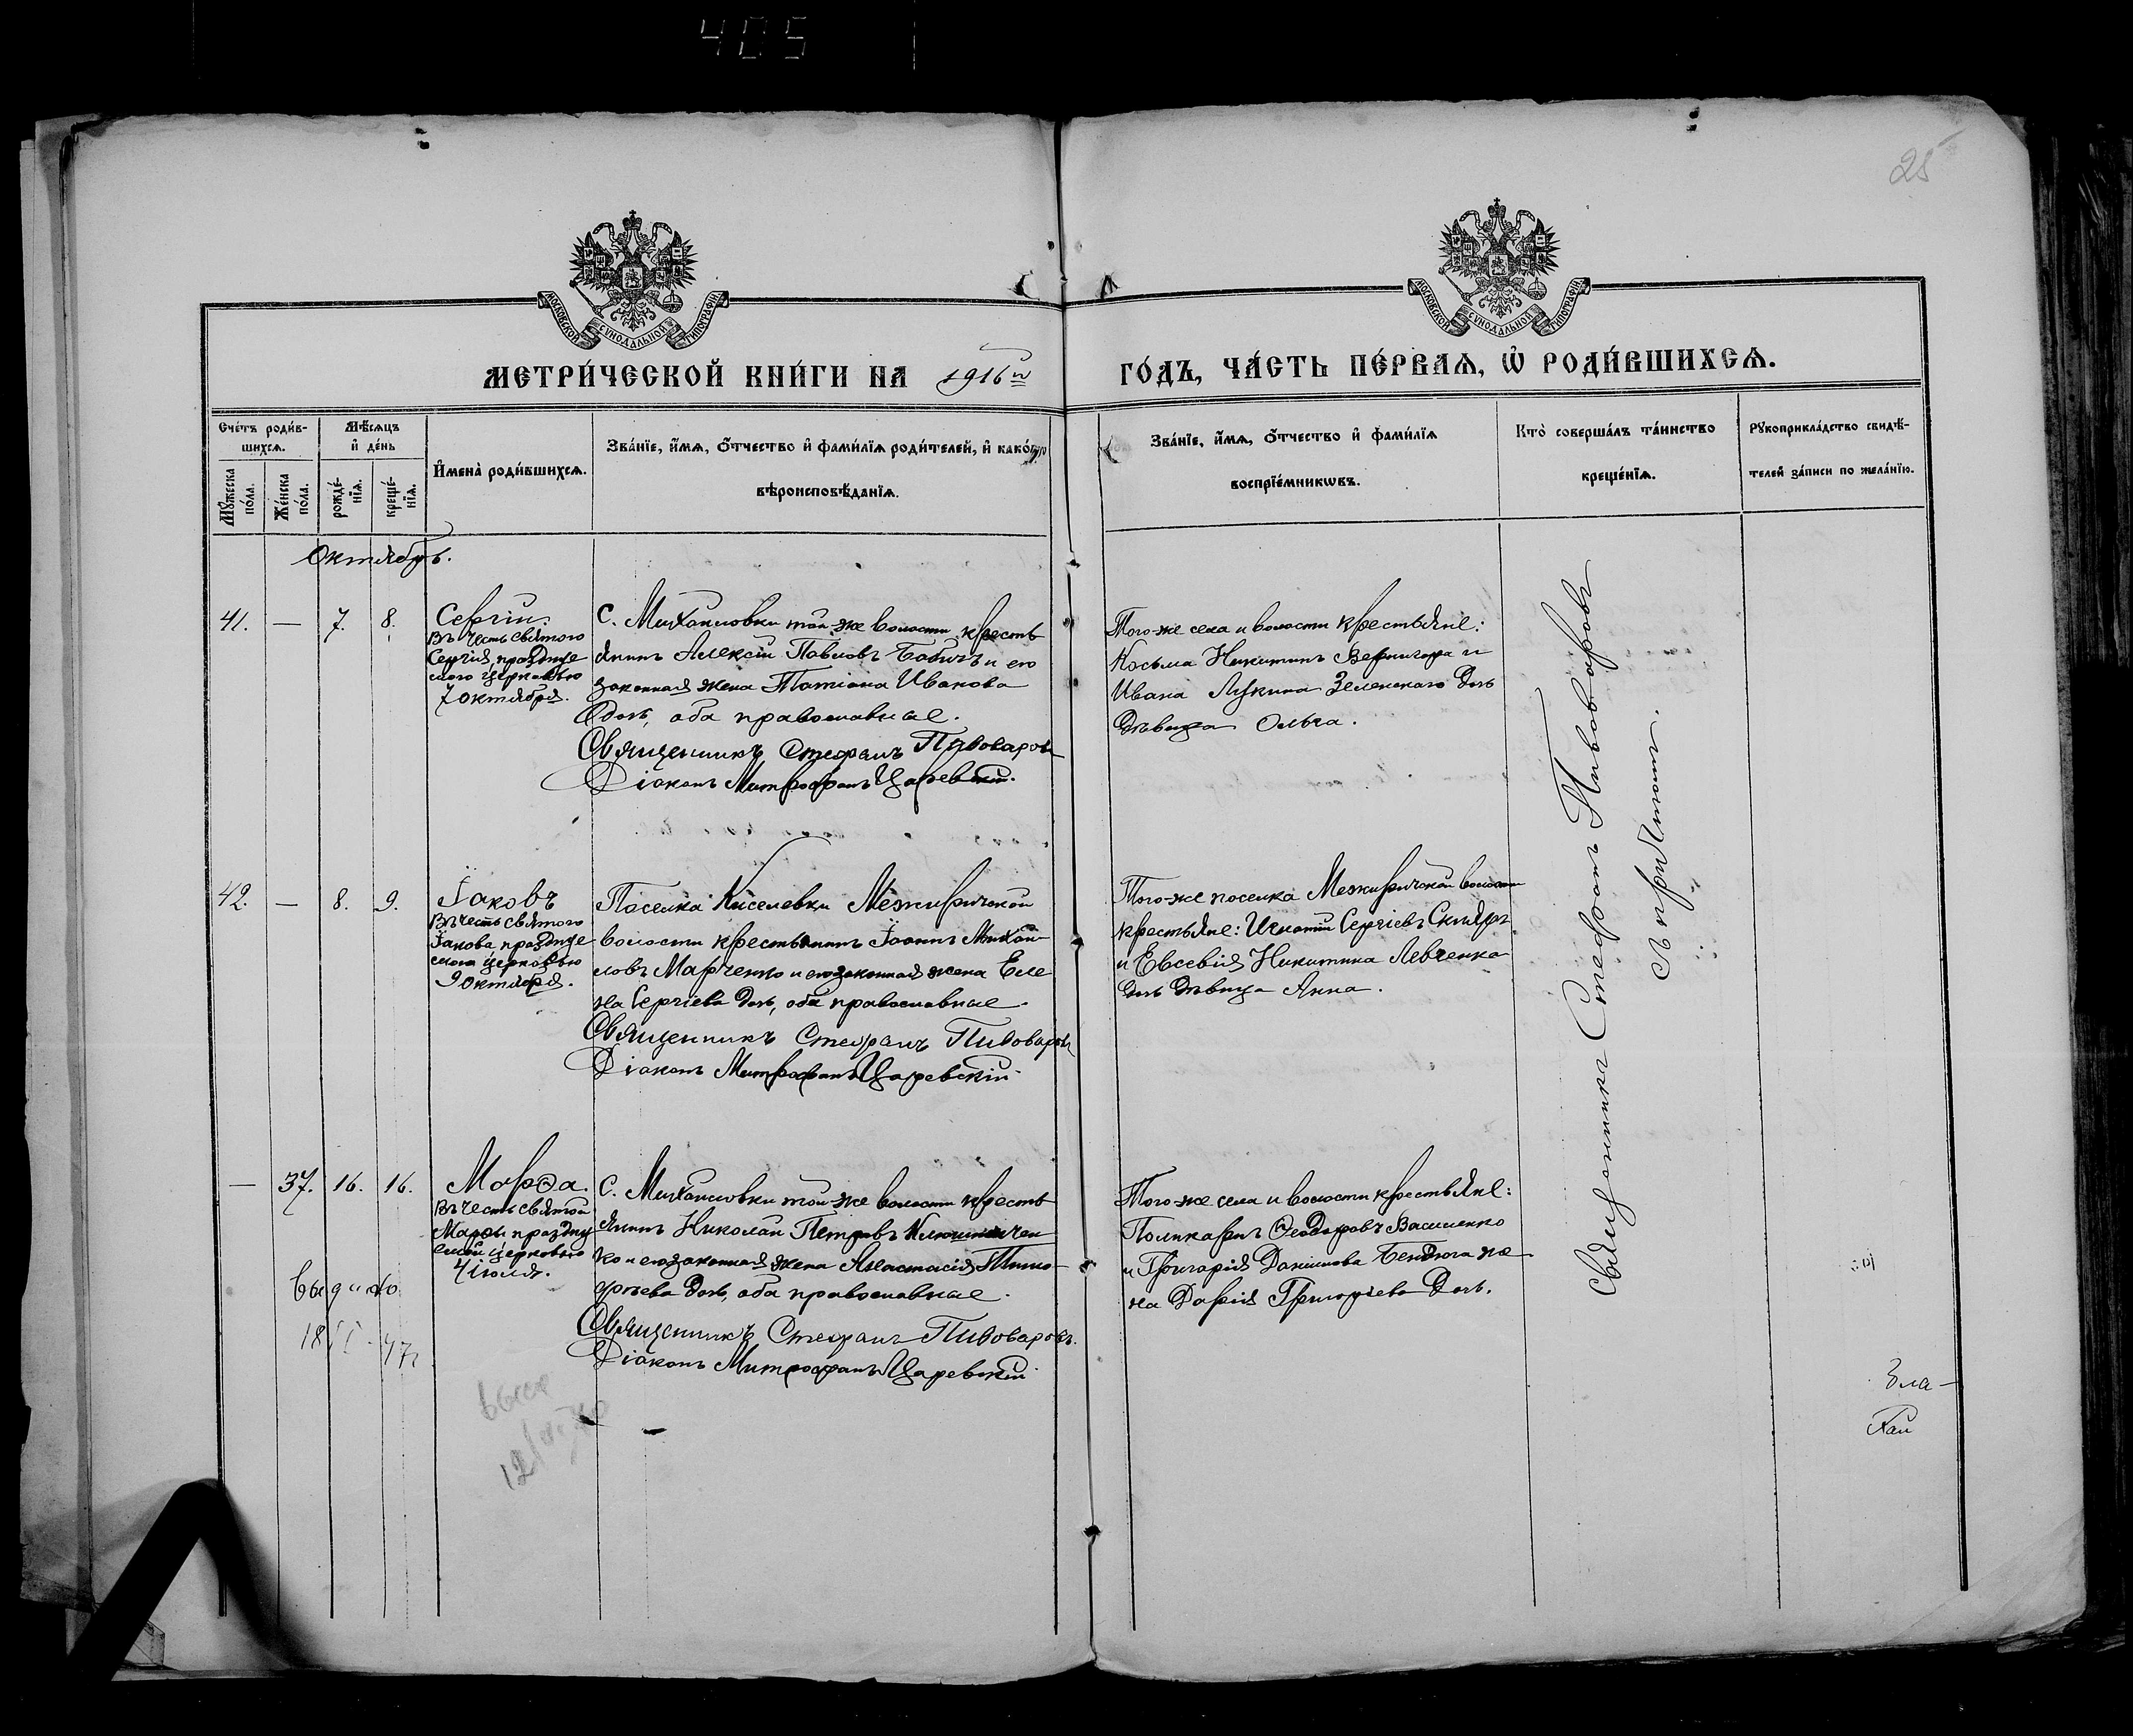 405
25
МОСКОВСКОЙ СѴНОДАЛЬНОЙ ТИПОГРАФІИ
МОСКОВСКОЙ СѴНОДАЛЬНОЙ ТИПОГРАФІИ
МЕТРИ́ЧЕСКОЙ КНИ́ГИ НА 1916й
ГО́ДЪ, ЧА́СТЬ ПЕ́РВАѦ, Ѡ҆ РОДИ́ВШИХСѦ.
Сче́тъ роди́в-
шихсѧ.
Мꙋ́жеска по́ла.
Же́нска по́ла.
Мѣ́сѧцъ
и҆ де́нь
рожде́-
нїѧ.
креще́-
нїѧ.
И҆мена̀ роди́вшихсѧ.
Зва́нїе, и҆́мѧ, ѻ҆́тчество и҆ фами́лїѧ роди́телей, и҆ како́гѡ
вѣроисповѣ́данїѧ.
Зва́нїе, и҆́мѧ, ѻ҆́тчество и҆ фами́лїѧ
воспрїе́мникѡвъ.
Кто̀ соверша́лъ та́инство
креще́нїѧ.
Рꙋкоприкла́дство свидѣ́-
телей за́писи по жела́нїю.
Октябрь.
41. — 7. 8.
Сергій.
Въ честь святого
Сергія, праздnуе
мого церковью
7 октября.
С. Михайловки той-же волости кресть
янинъ Алексій Павловъ Бабичъ и его
законная жена Татіана Иванова
дочь, оба православные.
Священникъ Стефанъ Пивоваровъ
Діаконъ Митрофанъ Царевскій.
Того-же села и волости крестьяне:
Косьма Никитинъ Вернигора и
Ивана Лукина Зеленскаго дочь
дѣвица Ольга.
42. — 8. 9.
Іаковъ
Въ честь святого
Іакова праздnуе
мого церковью
9 октября.
Поселка Киселевки Межиричской
волости крестьянинъ Іоаннъ Михай-
ловъ Марченко и его законная жена Еле
на Сергіева дочь, оба православные.
Священникъ Стефанъ Пивоваровъ
Діаконъ Митрофанъ Царевскій
Того-же поселка Межиричской волости
крестьяне: Игнатій Сергіевъ Скляръ
и Евсевія Никитина Левченка
дочь дѣвица Анна.
— 37. 16. 16.
Марѳа.
Въ честь святой
Марѳы праздну
емой церковью
4 іюля.
С. Михайловки той-же волости кресть
янинъ Николай Петровъ
ко и его законная жена Анастасія Тимо-
фѣева дочь, оба православные.
Священникъ Стефанъ Пивоваровъ.
Діаконъ Митрофанъ Царевскій
Того-же села и волости крестьяне:
Поликарпъ Ѳеодоровъ Василенко
и Григорія Даниилова Бендюга же-
на Дарія Григорьева дочь.
Священникъ Стефанъ Пивоваровъ
съ причтомъ.